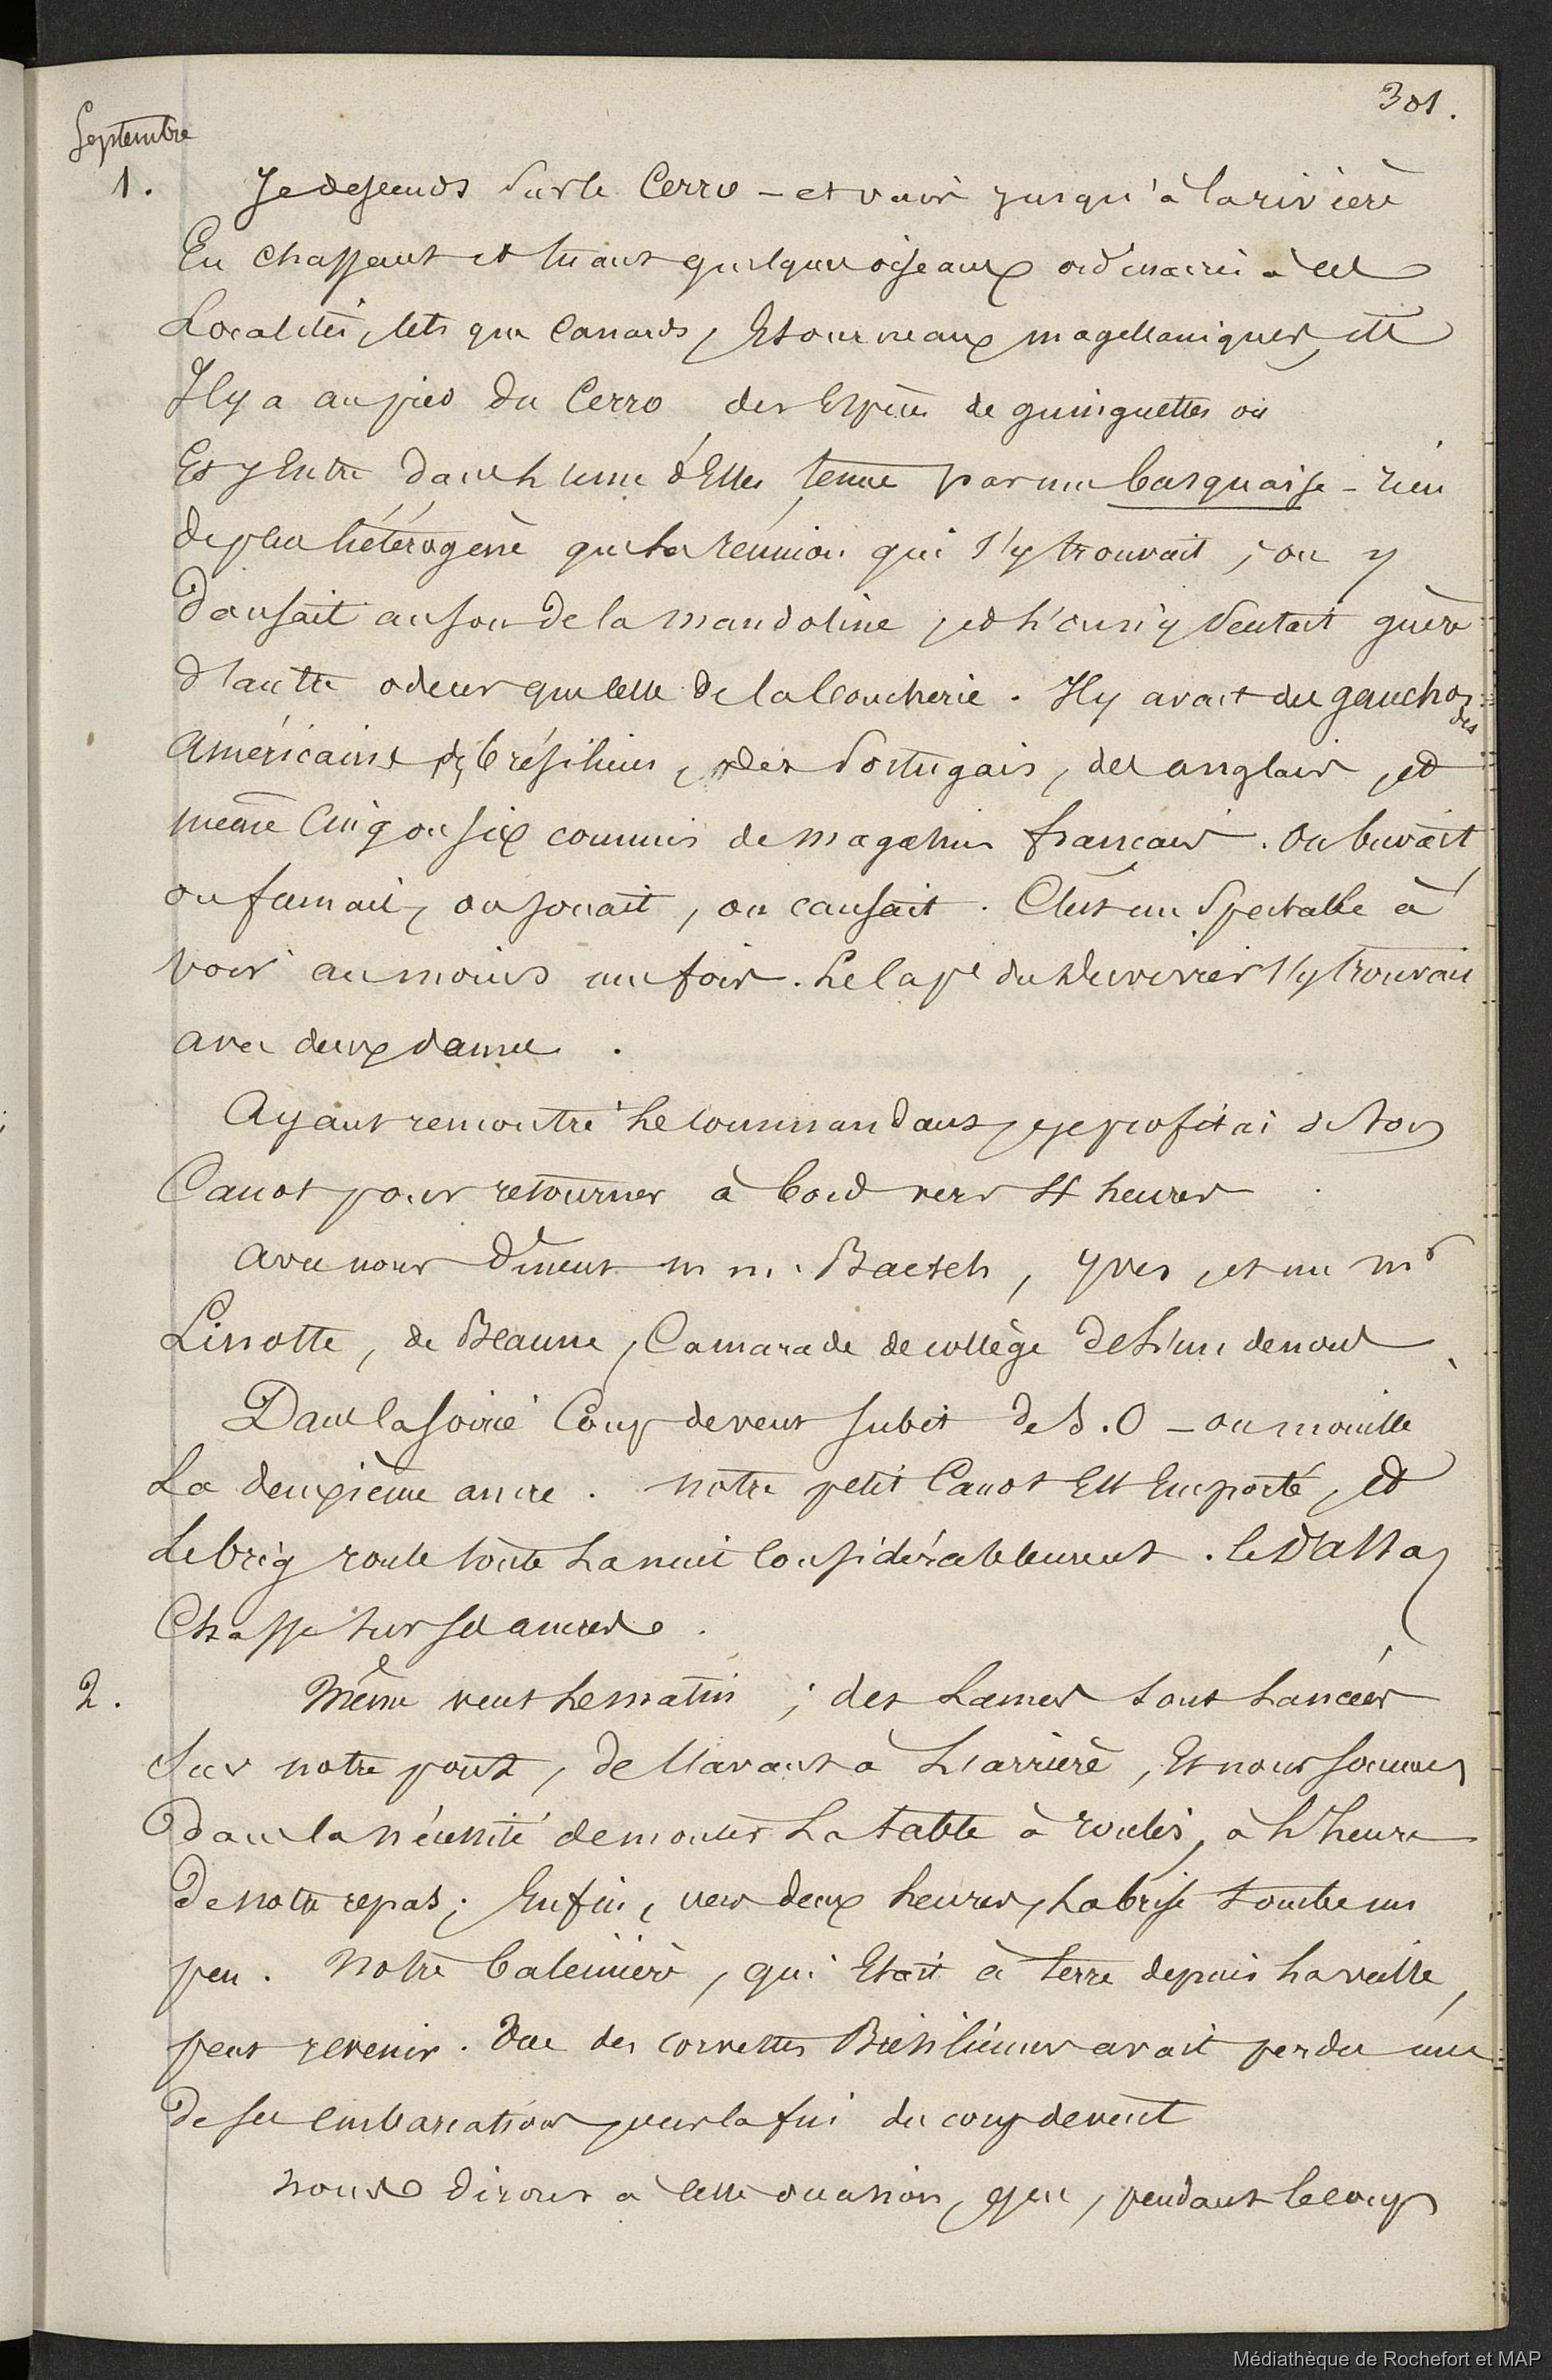 301.
Septembre
1. Je descends sur le Cerro – et vais jusqu'à la rivière
En chassant et tuant quelques oiseaux ordinaires à ces
Localités, tels que Canards, Etourneaux magellaniques, etc
Il y a au pied du Cerro des Espèces de guinguettes où
Et j'entre dans l'une d'Elles tenue par une basquaise – rien
de plus hétérogène que la réunion qui s'y trouvait ; on y
Dansait au son de la mandoline, et l'on n'y sentait guère
d'autre odeur que celle de la boucherie. Il y avait des gauchos
des
américains, brésiliens, des Portugais, des anglais, et
même Cinq ou six commis de magasins français. On buvait,
on fumait, on jouait, on causait. C'est un Spectacle à
voir au moins une fois. Le Cape du s'y trouvait
avec deux dames.
Ayant rencontré le Commandant, je profitai de son
Canot pour retourner à bord vers 4 heures
avec nous Dînent m m. Baetch, Yves, et un mr
Linotte, de Beaune, Camarade de collège de l'un de nous.
Dans la soirée Coup de vent subit de S.O – on mouille
La deuxième ancre. notre petit Canot Est Emporté, et
Le brig roule toute La nuit Considérablement. le D'assas
Chasse sur ses ancres.
2. Même vent Le matin ; des Lames sont Lancées
Sur notre pont, de l'avant à L'arrière, Et nous sommes
Dans la nécessité de monter La table à roulis, à l'heure
De notre repas ; Enfin, vers deux heures, La brise tombe un
peu. Notre baleinière, qui Etait à terre depuis La veille,
peut revenir. Une des corvettes Brésiliennes avait perdu une
De ses embarcations, vers la fin du coup de vent
nous Dirons à cette occasion, que, pendant le coup
Médiathèque de Rochefort et MAP